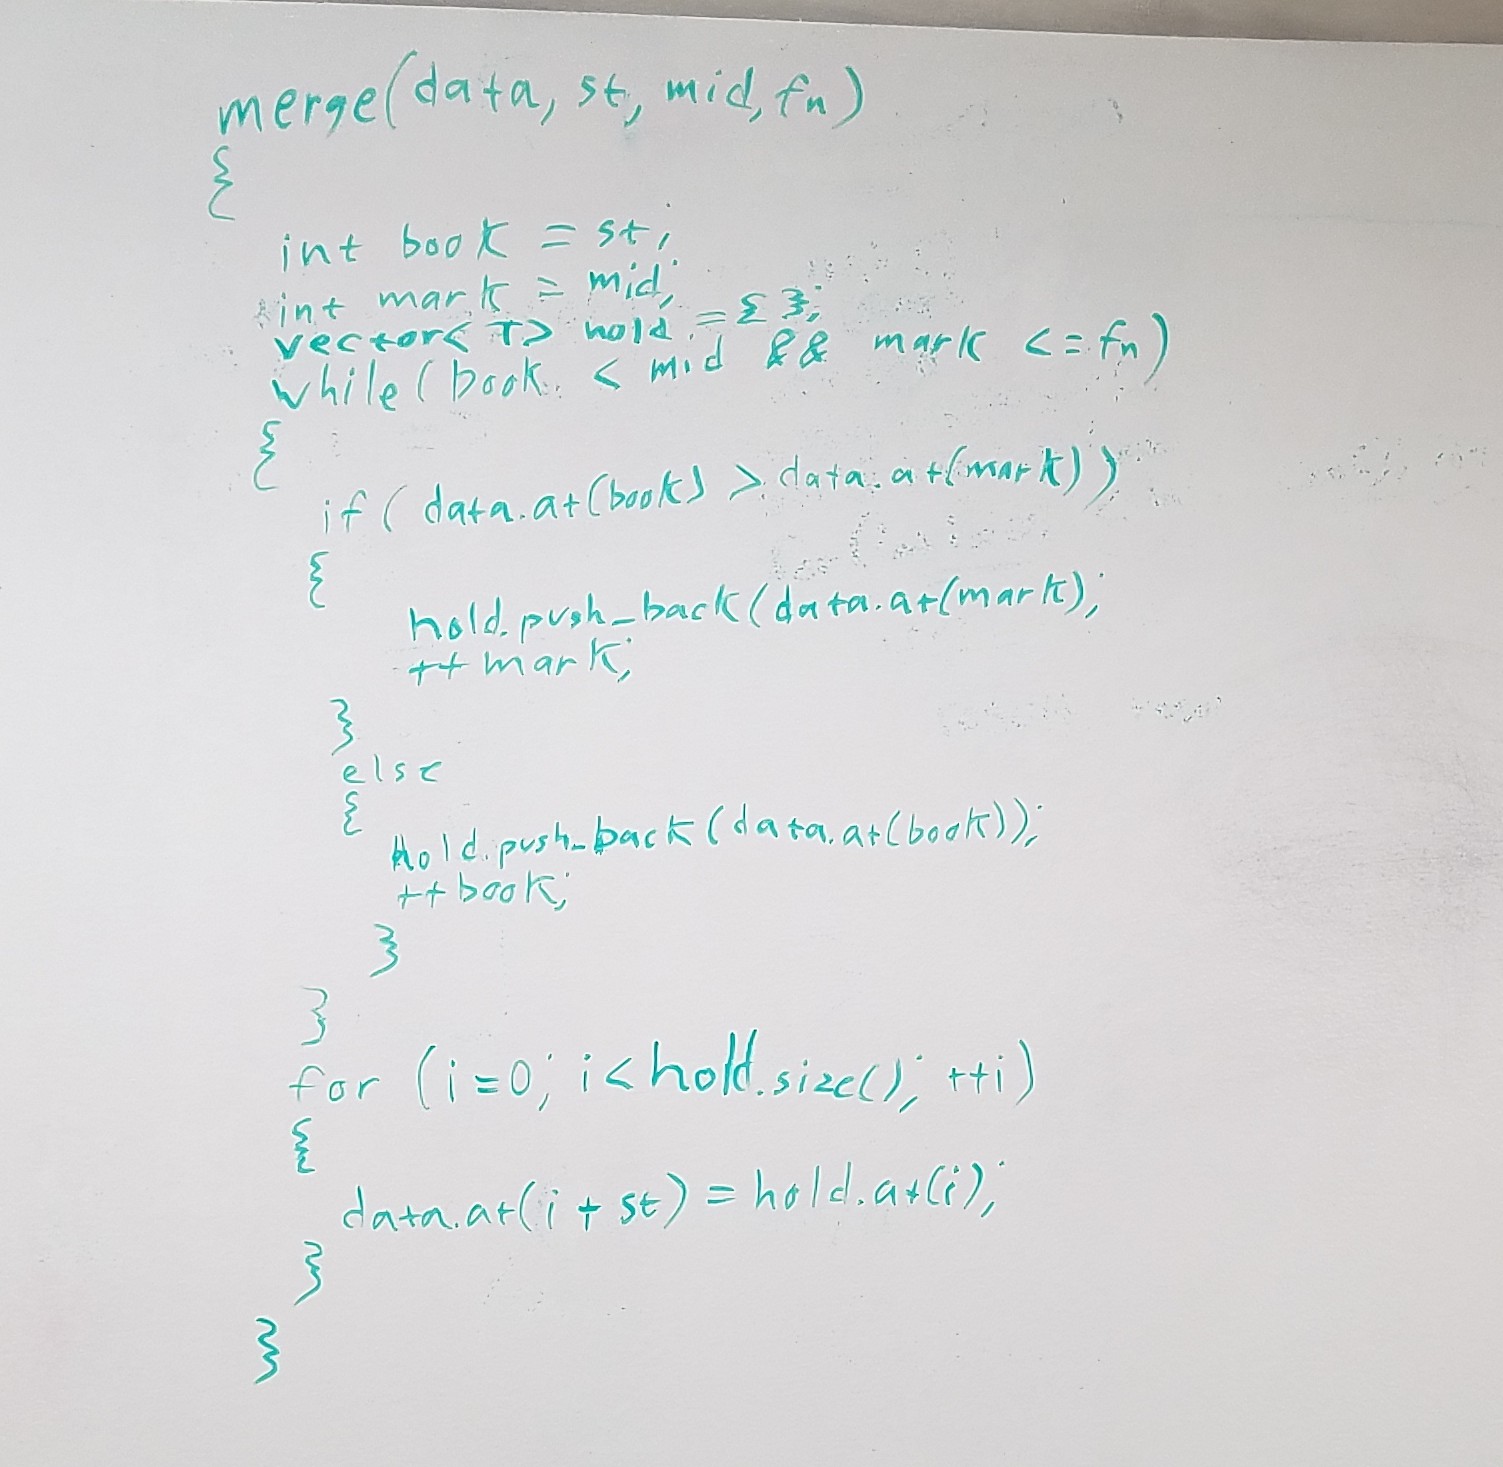 merge(data, st, mid, fn)
{
int book = st;
int mark = mid;
vector<T> hold = {};
while(book < mid && mark <= fn)
{
if(data.at(book) > data.at(mark))
{
hold.push_back(data.at(mark);
++mark;
}
else
{
hold.push_back(data.at(book));
++book;
}
}
for (i=0; i<hold.size(); ++i)
{
data.at(i + st) = hold.at(i);
}
}